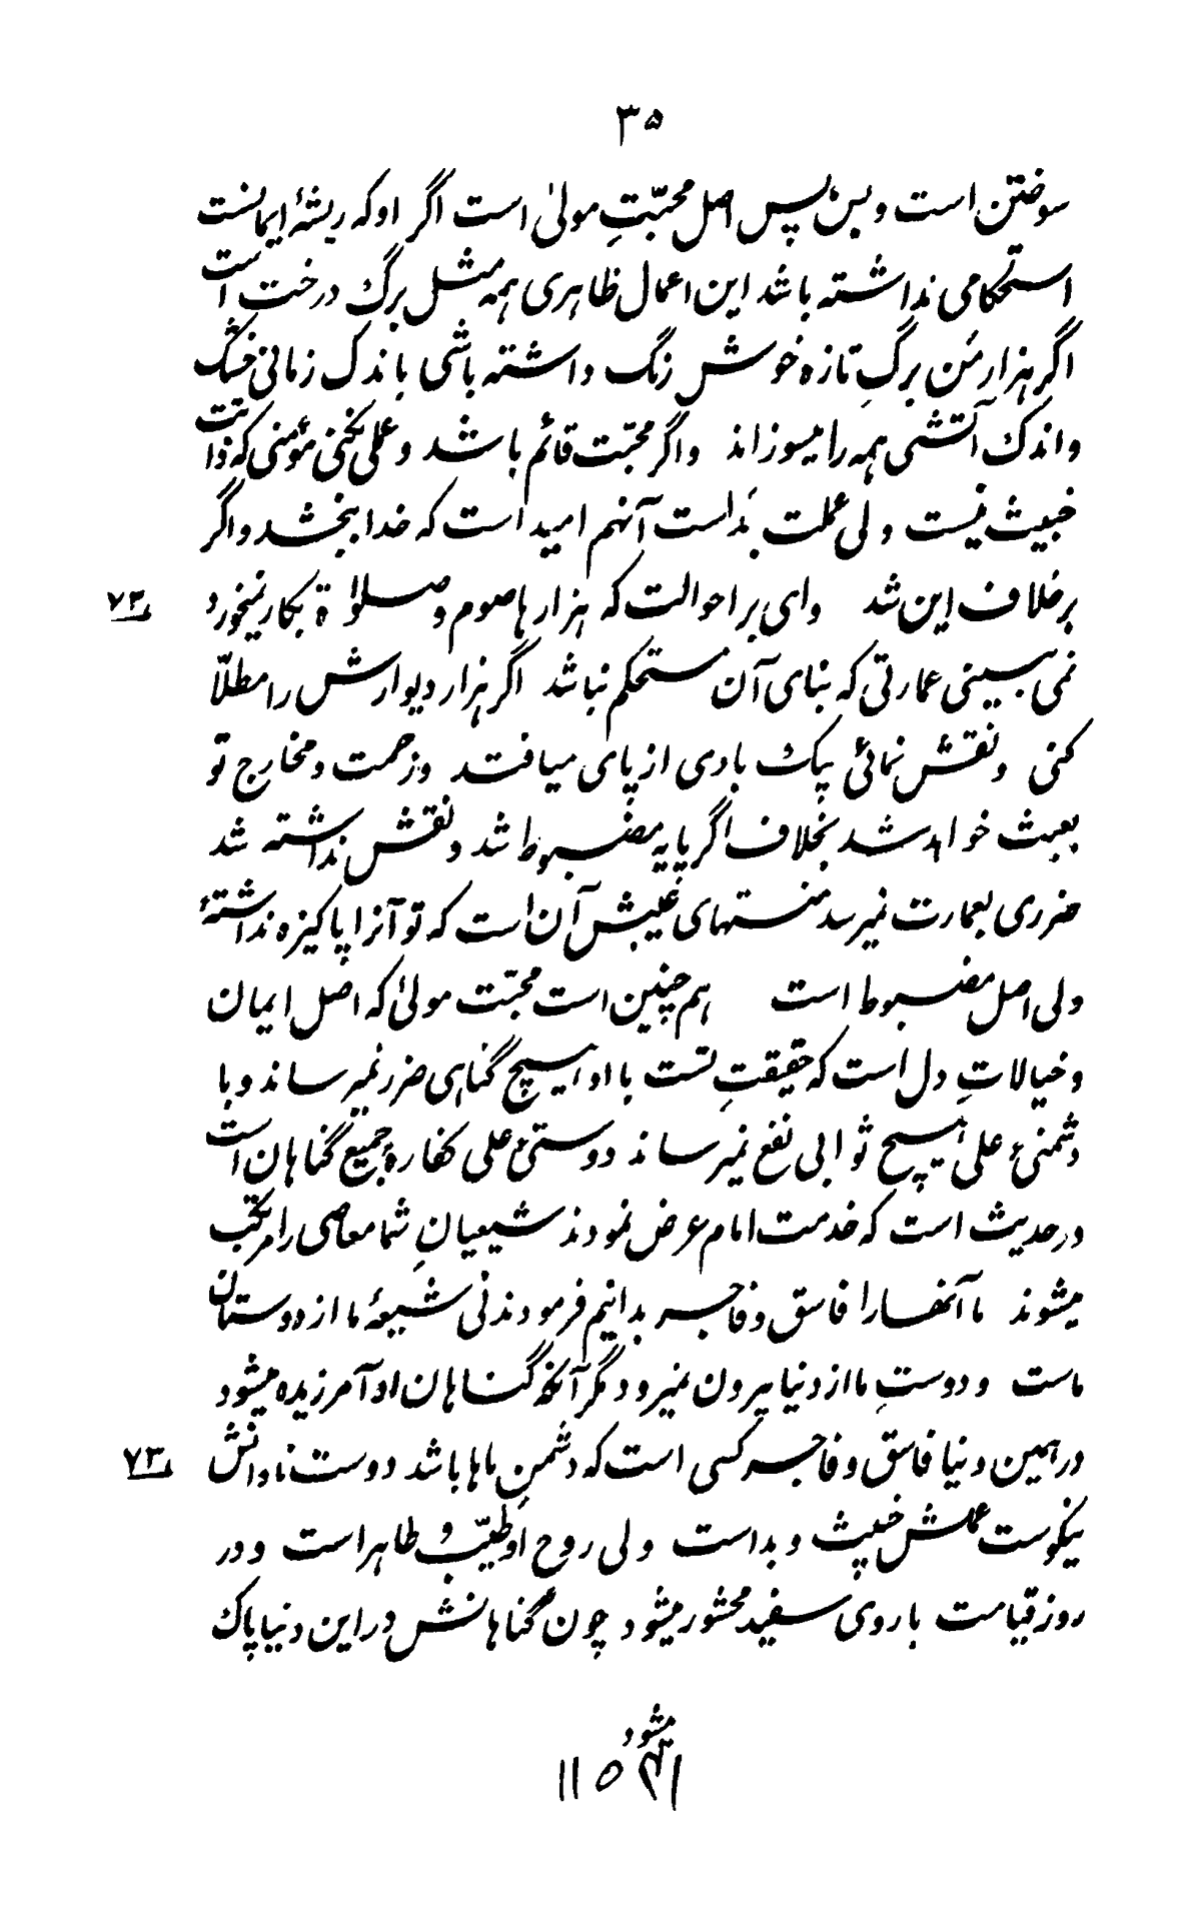 ۳۵
سوختن است و بس پس اصل محبّتِ مولیٰ است اگر او که ریشۀ ایمانست
استحکامی نداشته باشد این اعمال ظاهری همه مثل برگ درخت است
اگر هزار مَن برگِ تازه خوش رنگ داشته باشی باندک زمانی خشک
و اندک آتشی همه را میسوزاند و اگر محبّت قائم باشد و عملی بکنی مؤمنی که ذاتت
خبیث نیست ولی عملت بَد است آنهم امید است که خدا ببخشد و اگر
برخلاف این شد وای بر احوالت که هزارها صوم و صلوٰاة بکار نمیخورد
۷۲
نمی بینی عمارتی که بنای آن مستحکم نباشد اگر هزار دیوارش را مطلّا
کنی و نقش نمائی بیک بادی از پای میافتد و زحمت و مخارج تو
بعبث خواهد شد بخلاف اگر پایه مضبوط باشد و نقش نداشته شد
ضرری بعمارت نمیرسد منتهای عیبش آن است که تو آنرا پاکیزه نداشتۀ
ولی اصل مضبوط است هم چنین است محبّت مولیٰ که اصل ایمان
و خیالاتِ دل است که حقیقتِ تست با او هیچ گناهی ضرر نمیرساند و با
دشمنیٔ علی هیچ ثوابی نفع نمیرساند دوستیٔ علی کفارۀ جمیع گناهان است
در حدیث است که خدمت امام عرض نمودند شیعیانِ شما معاصی را مرتکب
میشوند ما آنها را فاسق و فاجر بدانیم فرمودند نی شیعۀ ما از دوستان
ماست و دوستِ ما از دنیا بیرون نمیرود مگر آنکه گناهان او آمرزیده میشود
در همین دنیا فاسق و فاجر کسی است که دشمنِ ماها باشد دوست نادانش
۷۳
نیکوست عملش خبیث و بد است ولی روح او طیّب و طاهر است و در
روز قیامت با روی سفید محشور میشود چون گناهانش در این دنیا پاک
میشود